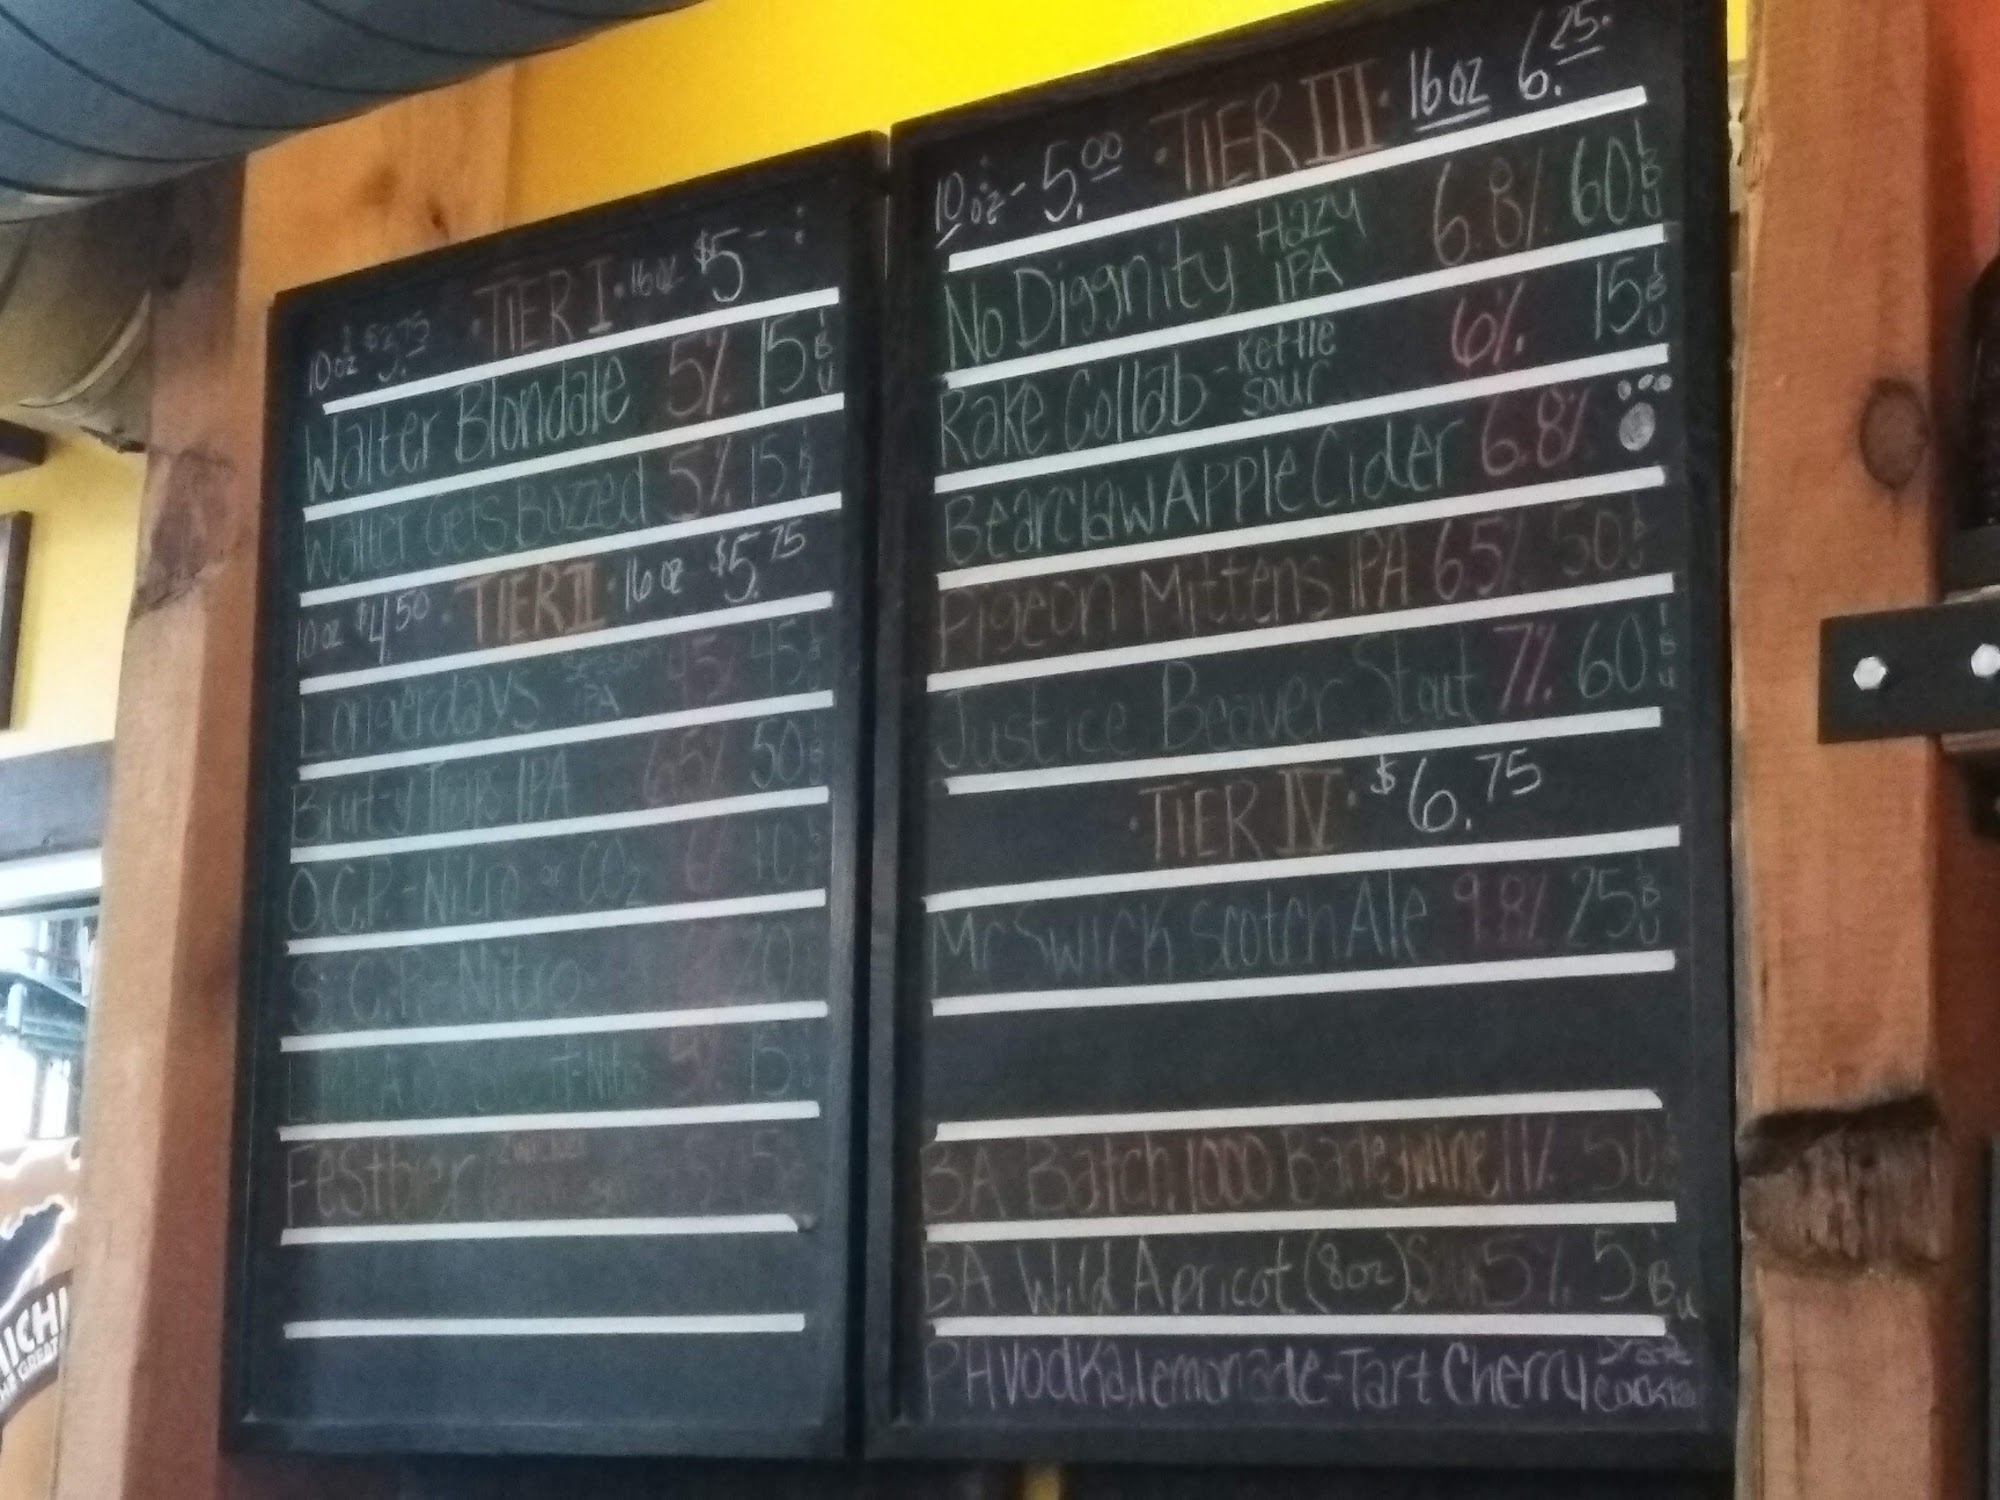 10 oz $3.75 · TIER I · 16 oz $5-
Walter Blondale 5% 15 IBU
Walter Gets Bozzed 5% 15 IBU
10 oz $4.50 · TIER II · 16 oz $5.75
Longerdays Session IPA 4.5% 45 IBU
Brut-y IPA 6.5% 50 IBU
O.C.P. - Nitro or CO2 6% 10 IBU
S.C.P. - Nitro
5% 15 IBU
Festbier
10 oz - 5.00 · TIER III · 16 oz 6.25
No Diggnity Hazy IPA 6.8% 60 IBU
Rake Collab - Kettle Sour 6% 15 IBU
Bearclaw Apple Cider 6.8%
Pigeon Mittens IPA 6.5% 50 IBU
Justice Beaver Stout 7% 60 IBU
· TIER IV · $6.75
McSwick Scotch Ale 9.8% 25 IBU
BA Batch 1000 Barleywine 11% 50 IBU
BA Wild Apricot (8oz) Sour 5% 5 IBU
PH Vodka, lemonade - Tart Cherry
ICHI
GREAT